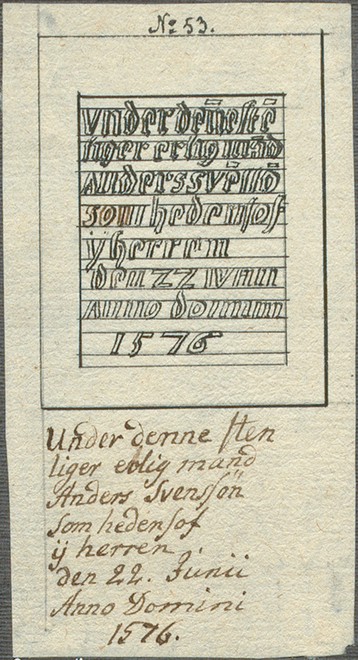 No. 53.
VNder denne stē
liger erlig mād
Anders svēssō
som hedensof
ÿ herren
den 22 IVNII
Anno domini
1576
Under denne sten
liger erlig mand
Anders Svenssön
som hedensof
ij herren
den 22. Junii
Anno Domini
1576.